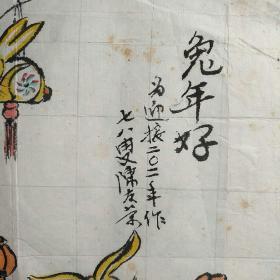 兔年好
为迎接二〇二年作
七八叟陈左荣